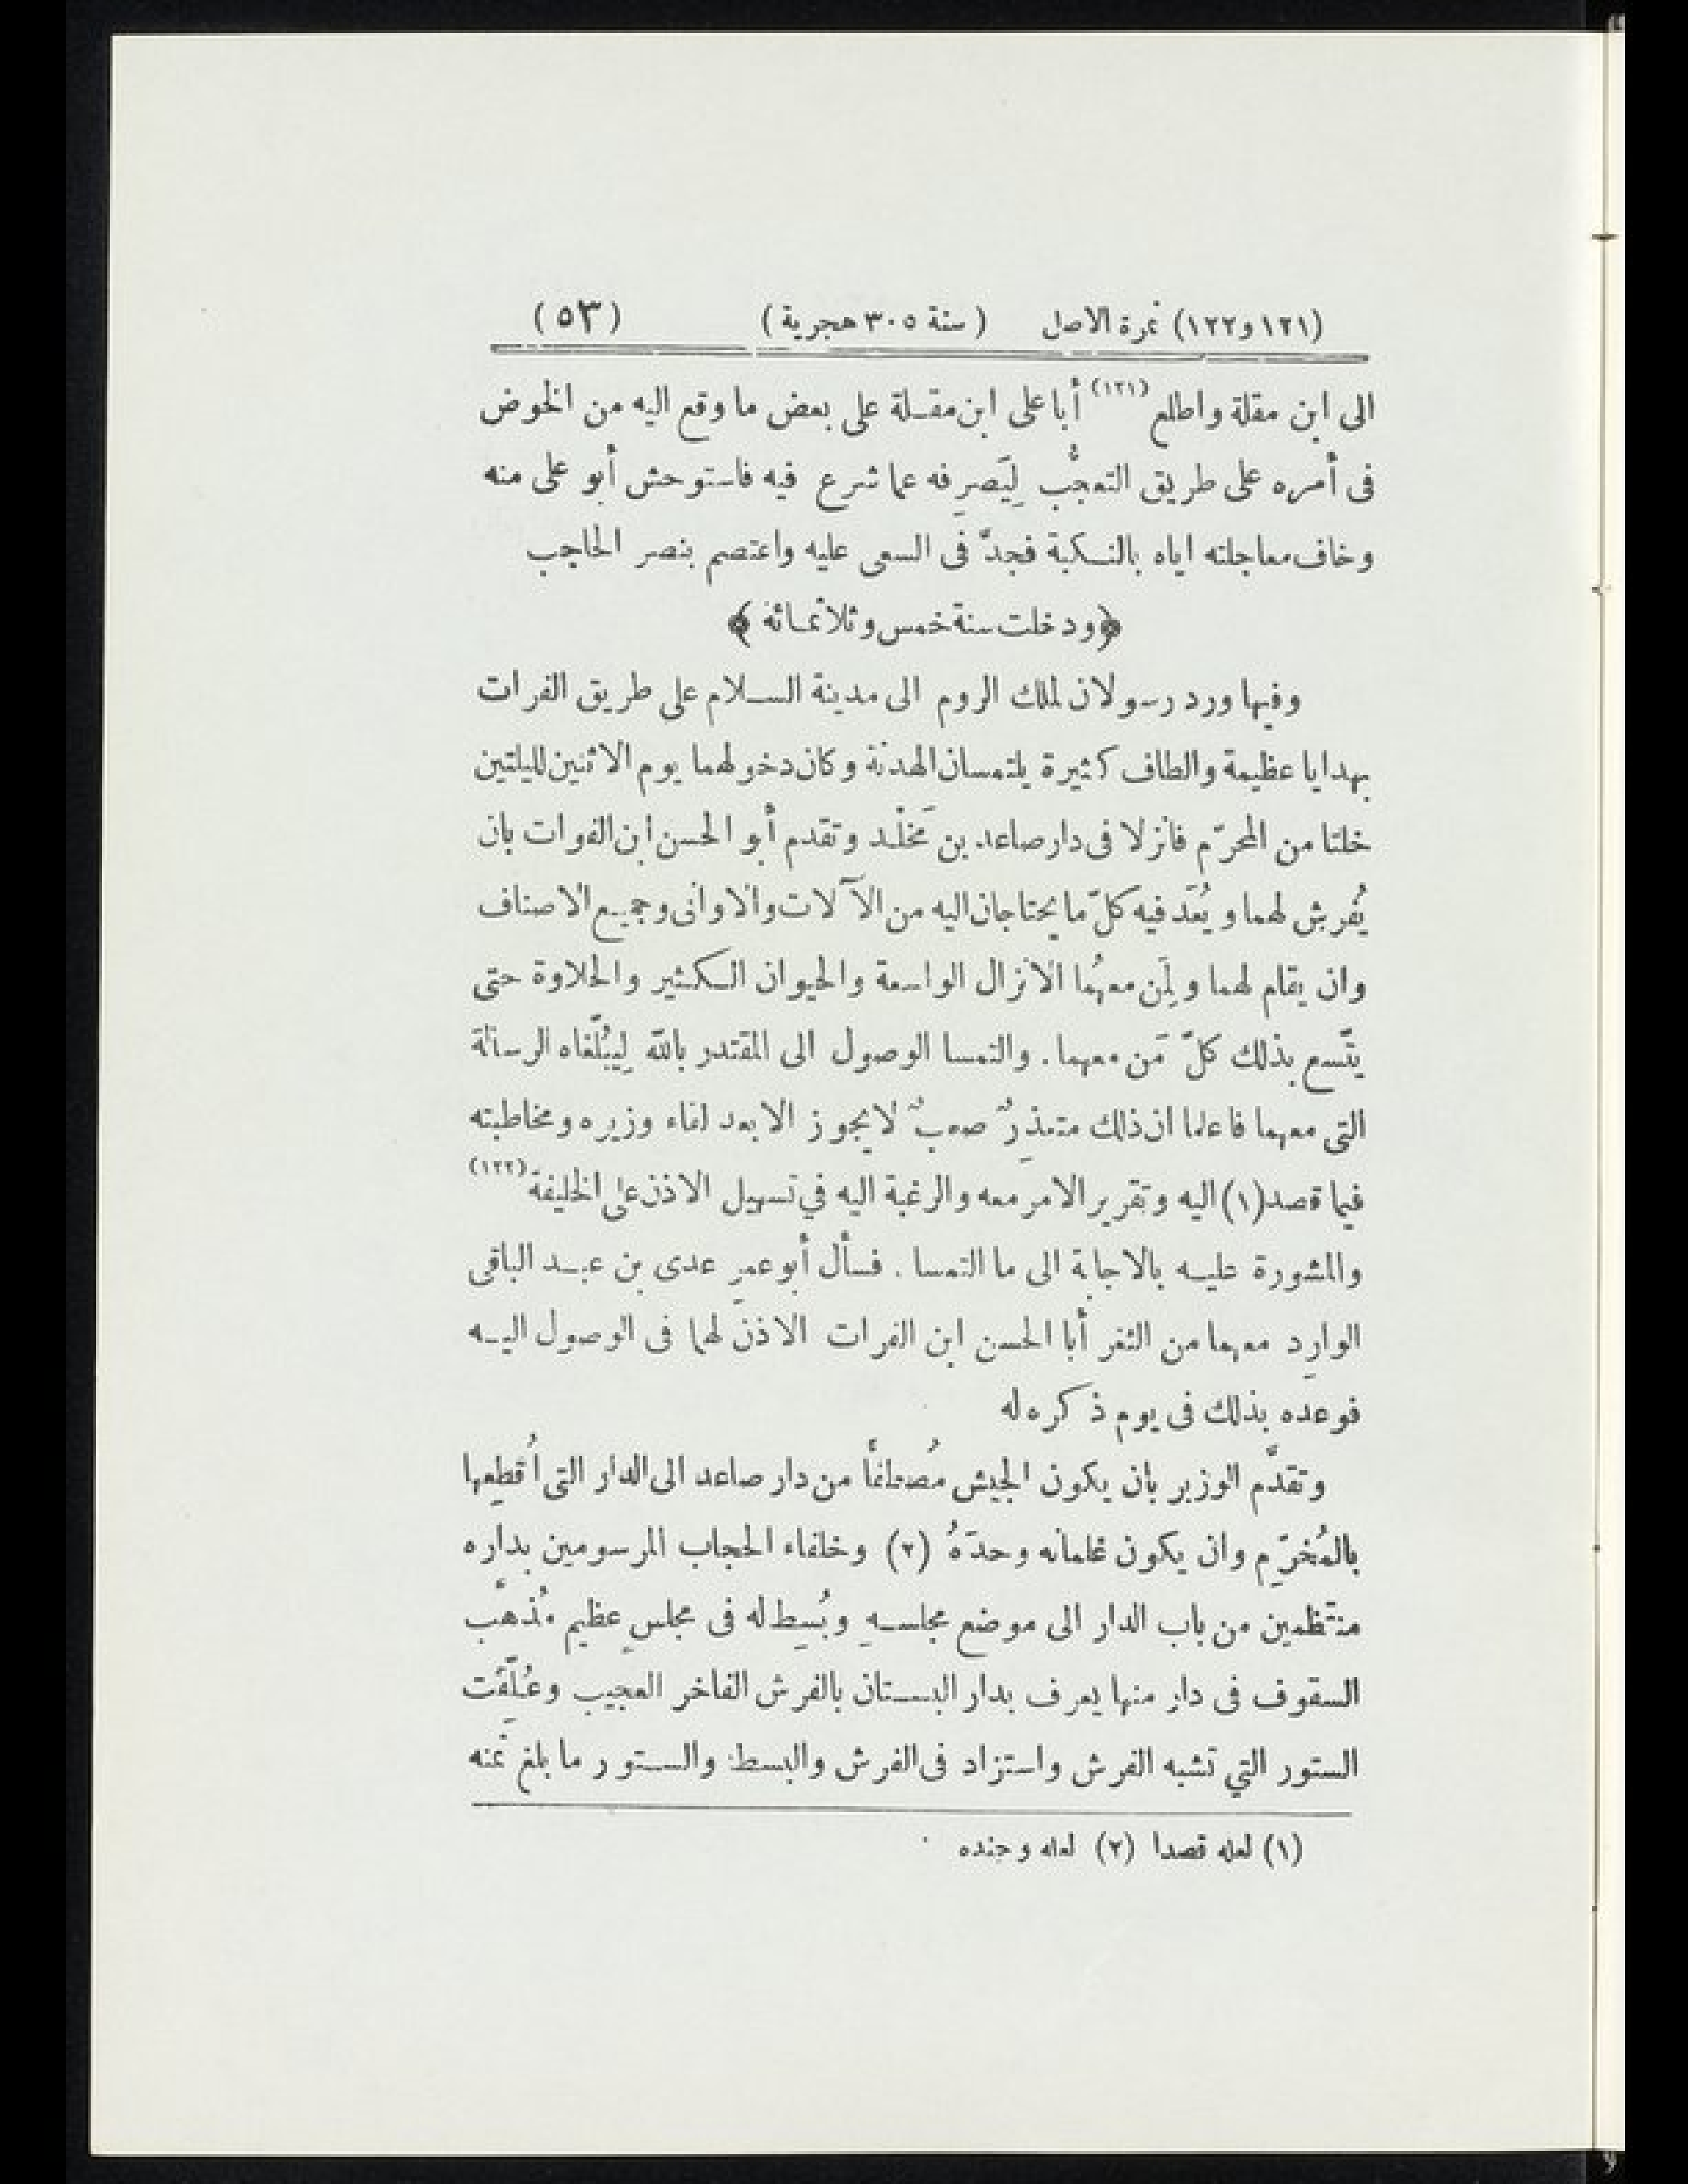 (١٢١و١٢٢) نمرة الاصل (سنة ٣٠٥ هجرية) (٥٣)
الى ابن مقلة واطلع (١٢١) أبا على ابن مقلة على بعض ما وقع اليه من الخوض
فى أمره على طريق التعجُّب لِيَصرِفه عما شرع فيه فاستوحش أبو على منه
وخاف معاجلته اياه بالنكبة فجدَّ فى السعى عليه واعتصم بنصر الحاجب
﴿ودخلت سنة خمس وثلاثمائة﴾
وفيها ورد رسولان لملك الروم الى مدينة السلام على طريق الفرات
بهدايا عظيمة والطاف كثيرة يلتمسان الهدنة وكان دخولهما يوم الاثنين لليلتين
خلتا من المحرّم فانزلا فى دار صاعد بن مَخْلد وتقدم أبو الحسن ابن الفرات بان
يُفرش لهما ويُعَد فيه كلّ ما يحتاجان اليه من الآلات والاوانى وجميع الاصناف
وان يقام لهما ولِمَن معهُما الانزال الواسعة والحيوان الكثير والحلاوة حتى
يتّسع بذلك كلّ مَن معهما. والتمسا الوصول الى المقتدر بالله لِيبُلّغاه الرسالة
التى معهما فاعلما ان ذلك متعذِرٌ صعبٌ لا يجوز الا بعد لقاء وزيره ومخاطبته
فيما قصد(١) اليه وتقرير الامر معه والرغبة اليه في تسهيل الاذن على الخليفة (١٢٢)
والمشورة عليه بالاجابة الى ما التمسا. فسأل أبو عمرٍ عدى بن عبد الباقى
الوارِد معهما من الثغر أبا الحسن ابن الفرات الاذن لهما فى الوصول اليه
فوعده بذلك فى يوم ذكره له
وتقدَّم الوزير بان يكون الجيش مُصطفًا من دار صاعد الى الدار التى أُقطِعها
بالمُخرّم وان يكون غلمانه وحدَهُ (٢) وخلفاء الحجاب المرسومين بداره
منتظمين من باب الدار الى موضع مجلسهِ وبُسِط له فى مجلسٍ عظيم مُذهَّب
السقوف فى دارٍ منها يعرف بدار البستان بالفرش الفاخر العجيب وعُلّقَت
الستور التي تشبه الفرش واستزاد فى الفرش والبسط والستور ما بلغ ثمنه
(١) لعله قصدا (٢) لعله وجنده